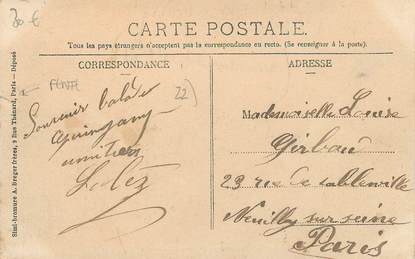 30 €
CARTE POSTALE.
Tous les pays étrangers n'acceptent pas la correspondance au recto. (Se renseigner à la poste).
CORRESPONDANCE
Souvenir
amitiés
ADRESSE
Mademoiselle Louise
Girbau
23 rue de Sablonville
Neuilly sur seine
Paris
Simi-bromure A. Breger Frères, 9 Rue Thénard, Paris — Déposé